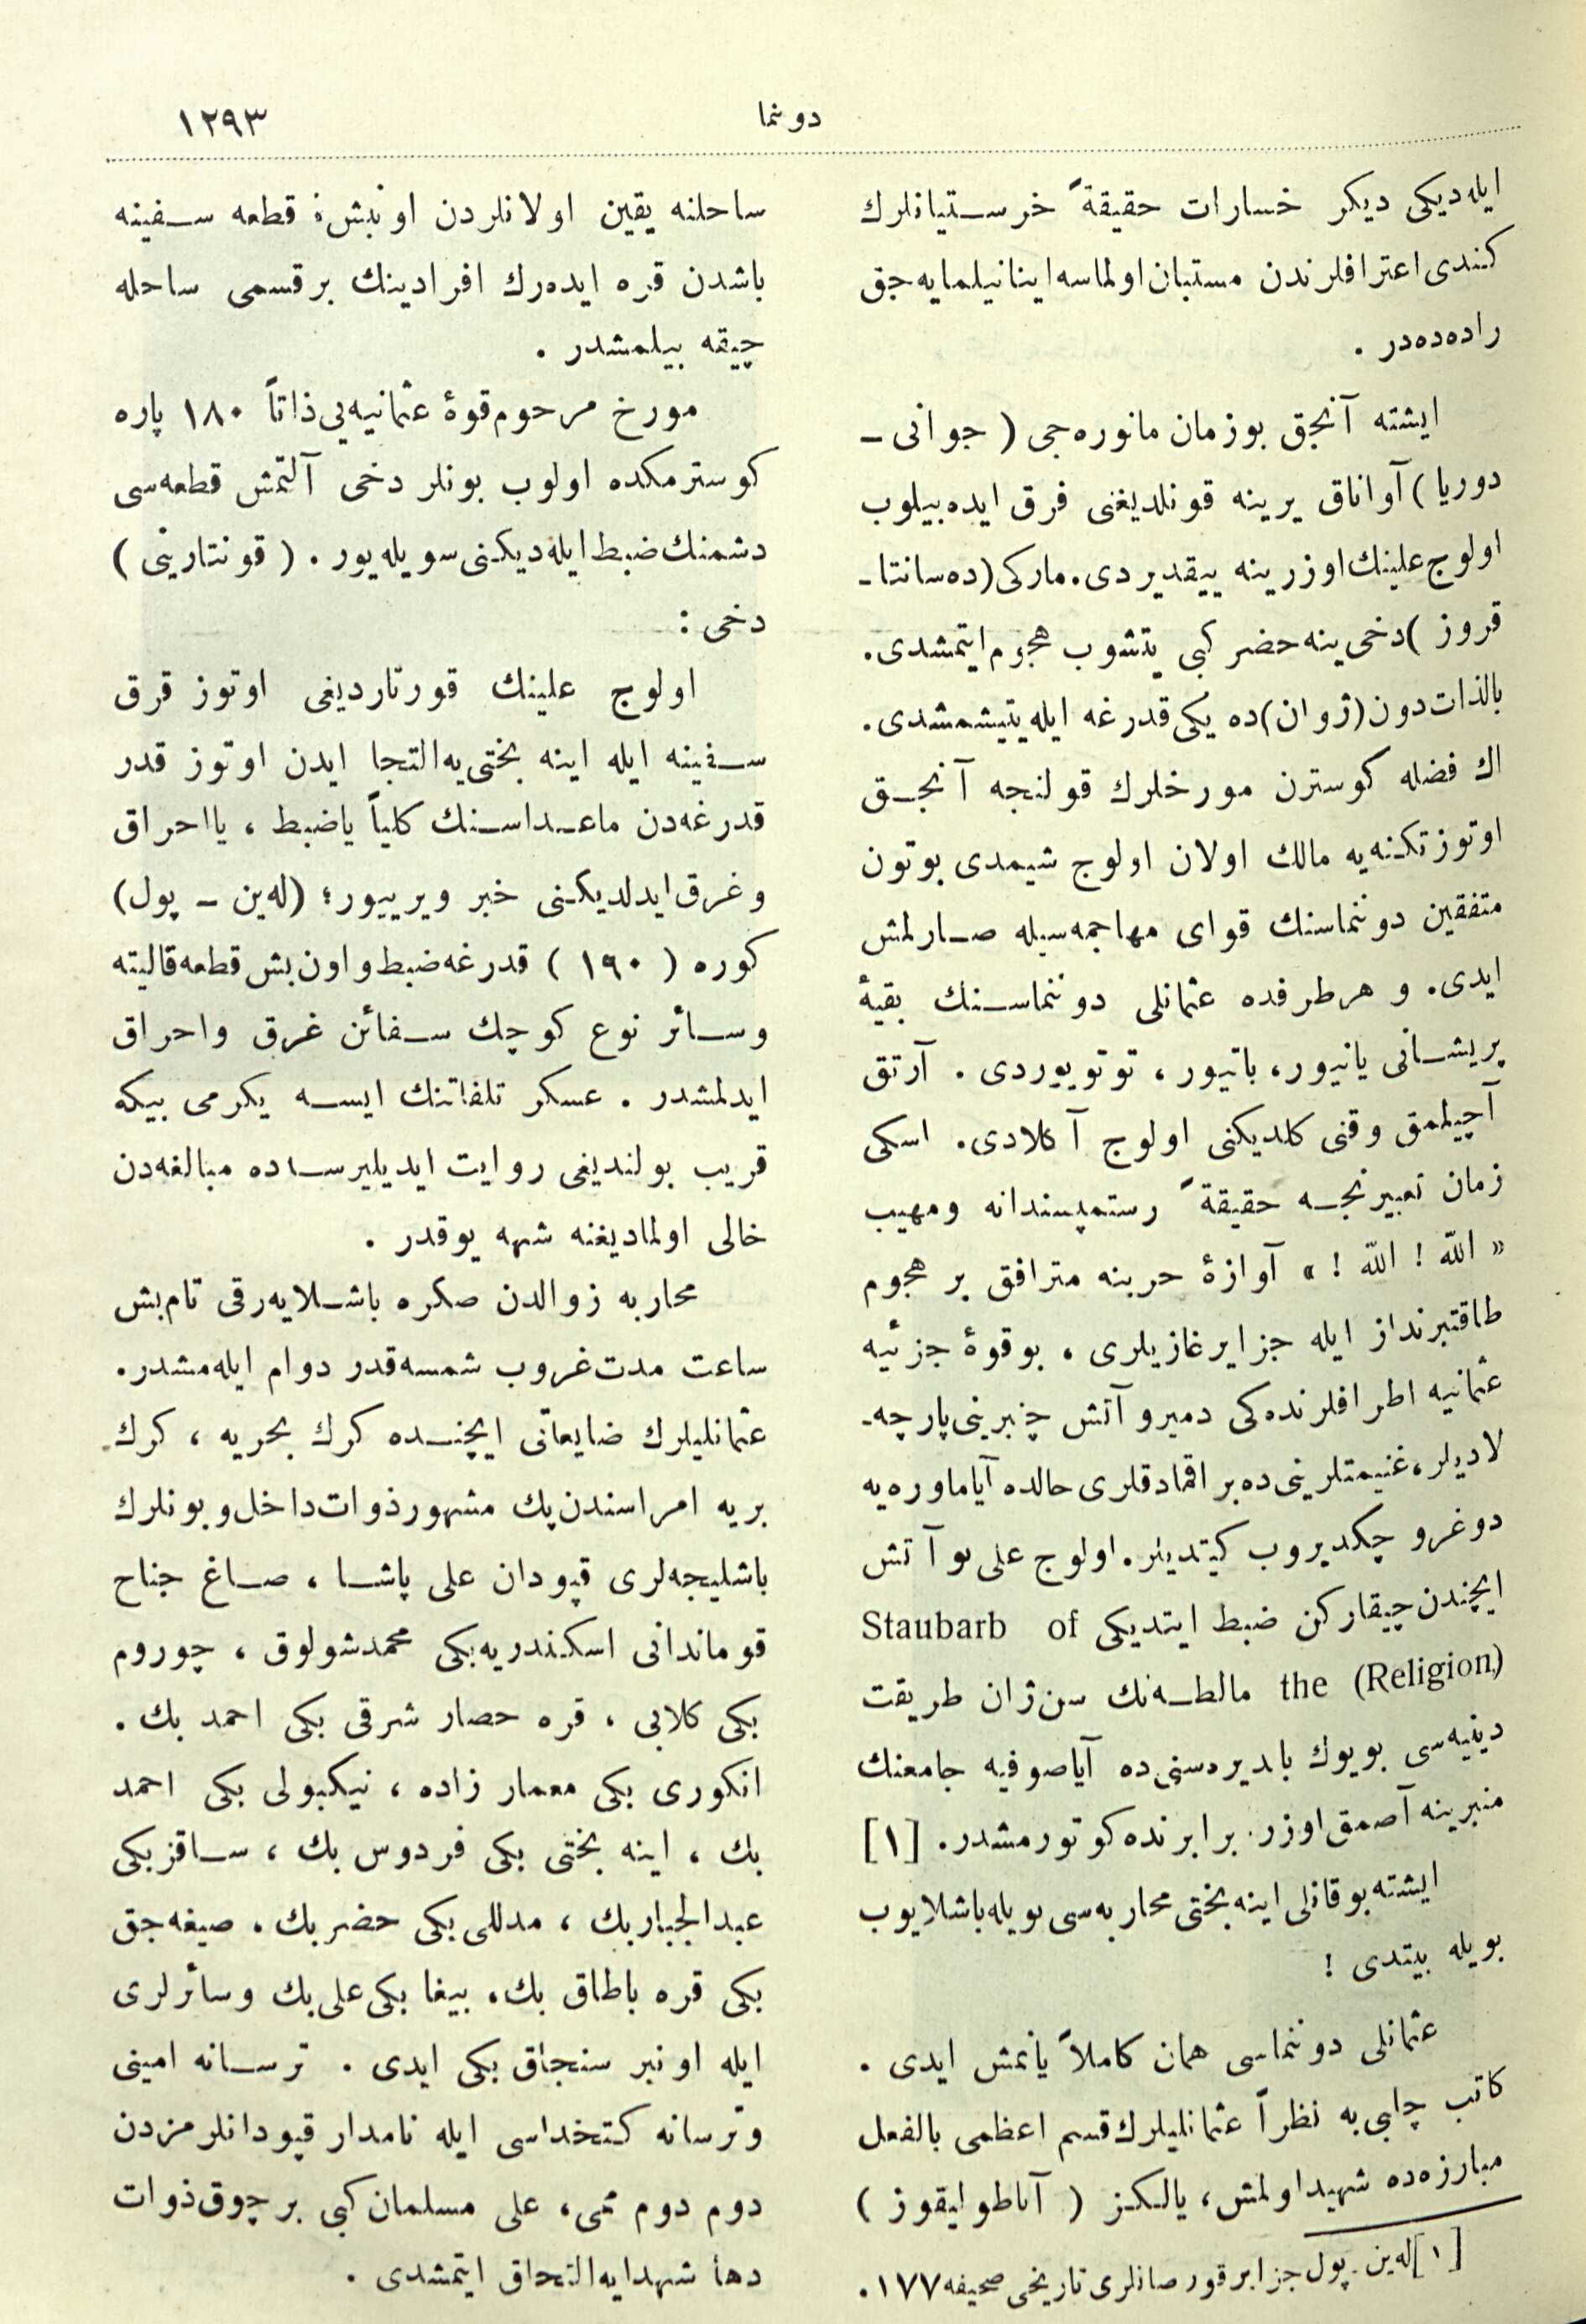 ١٢٩٣
دوننما
ایله‌دیكی دیكر خسارات حقیقةً خرستیانلرك
كندی اعترافلرندن مستبان اولماسه اینانیلمایه‌جق
راده‌ده‌در .
ایشته آنجق بوزمان مانوره‌جی ( جوانی ـ
دوریا ) آواناق یرینه قونلدیغنی فرق ایده‌بیلوب
اولوج علینك اوزرینه ییقدیردی. ماركی (ده سانتا ـ
قروز ) دخی ینه حضر كبی یتشوب هجوم ایتمشدی.
بالذات دون (ژوان) ده یكی قدرغه ایله یتیشمشدی.
اك فضله كوسترن مورخلرك قولنجه آنجـق
اوتوز تكنه‌یه مالك اولان اولوج شیمدی بوتون
متفقین دوننماسنك قوای مهاجمه‌سیله صـارلمش
ایدی. و هر طرفده عثمانلی دوننماسـنك بقیهٔ
پریشـانی یانیور، باتیور، توتویوردی . آرتق
آچیلمق وقتی كلدیكنی اولوج آكلادی. اسكی
زمان تعبیرنجـه حقیقةً رستمپسندانه ومهیب
« الله ! الله ! » آوازهٔ حربنه مترافق بر هجوم
طاقتبرنداز ایله جزایر غازیلری ، بوقوهٔ جزئیه
عثمانیه اطرافلرنده‌كی دمیر و آتش چنبرینی پارچه‌ـ
لادیلر، غنیمتلرینی ده براقمادقلری حالده آیاماوره‌یه
دوغرو چكدیروب كیتدیلر. اولوج علی بو آتش
ایچندن چیقاركن ضبط ایتدیكی Staubarb of
the (Religion) مالطـه‌نك سن ژان طریقت
دینیه‌سی بویوك بایدیره‌سنی ده آیاصوفیه جامعنك
منبرینه آصمق اوزره برابرنده كوتورمشدر. [١]
ایشته بوقانلی اینه‌بختی محاربه‌سی بویله باشلایوب
بویله بیتدی !
عثمانلی دوننماسی همان كاملاً یانمش ایدی .
كاتب چلبی‌یه نظراً عثمانلیلرك قسم اعظمی بالفعل
مبارزه‌ده شهید اولمش، یالكـز ( آناطولیقوز )
[١] له‌ین ـ پول جزایر قورصانلری تاریخی صحیفه ١٧٧.
ساحلنه یقین اولانلردن اونبش قطعه سـفینه
باشدن قره ایده‌رك افرادینك برقسمی ساحله
چیقه بیلمشدر .
مورخ مرحوم قوهٔ عثمانیه‌یی ذاتاً ١٨٠ پاره
كوسترمكده اولوب بونلر دخی آلتمش قطعه‌سی
دشمنك ضبط ایله‌دیكنی سویله‌یور . ( قونتارینی )
دخی :
اولوج علینك قورتاردیغی اوتوز قرق
سـفینه ایله اینه بختی‌یه التجا ایدن اوتوز قدر
قدرغه‌دن ماعـداسـنك كلیاً یاضبط ، یااحراق
وغرق ایدلدیكنی خبر ویرییور؛ (له‌ین ـ پول)
كوره ( ١٩٠ ) قدرغه ضبط واون بش قطعه قالیته
وسـائر نوع كوچك سـفائن غرق واحراق
ایدلمشدر . عسكر تلفاتنك ایسـه یكرمی بیكه
قریب بولندیغی روایت ایدیلیرسـه‌ده مبالغه‌دن
خالی اولمادیغنه شبهه یوقدر .
محاربه زوالدن صكره باشـلایه‌رق تام بش
ساعت مدت غروب شمسه قدر دوام ایله‌مشدر.
عثمانلیلرك ضایعاتی ایچنـده كرك بحریه ، كرك
بریه امراسندن پك مشهور ذوات داخل و بونلرك
باشلیجه‌لری قپودان علی پاشـا ، صـاغ جناح
قومانداني اسكندریه‌بكی محمد شولوق ، چوروم
بكی كلابی ، قره حصار شرقی بكی احمد بك .
انكوری بكی معمار زاده ، نیكبولی بكی احمد
بك ، اینه بختی بكی فردوس بك ، سـاقز بكی
عبدالجبار بك ، مدللی بكی حضر بك . صیغه‌جق
بكی قره باطاق بك، بیغا بكی علی بك وسائرلری
ایله اونبر سنجاق بكی ایدی . ترسـانه امینی
وترسانه كتخداسی ایله نامدار قپودانلرمزدن
دوم دوم ممی، علی مسلمان كبی برچوق ذوات
دها شهدایه التحاق ایتمشدی .